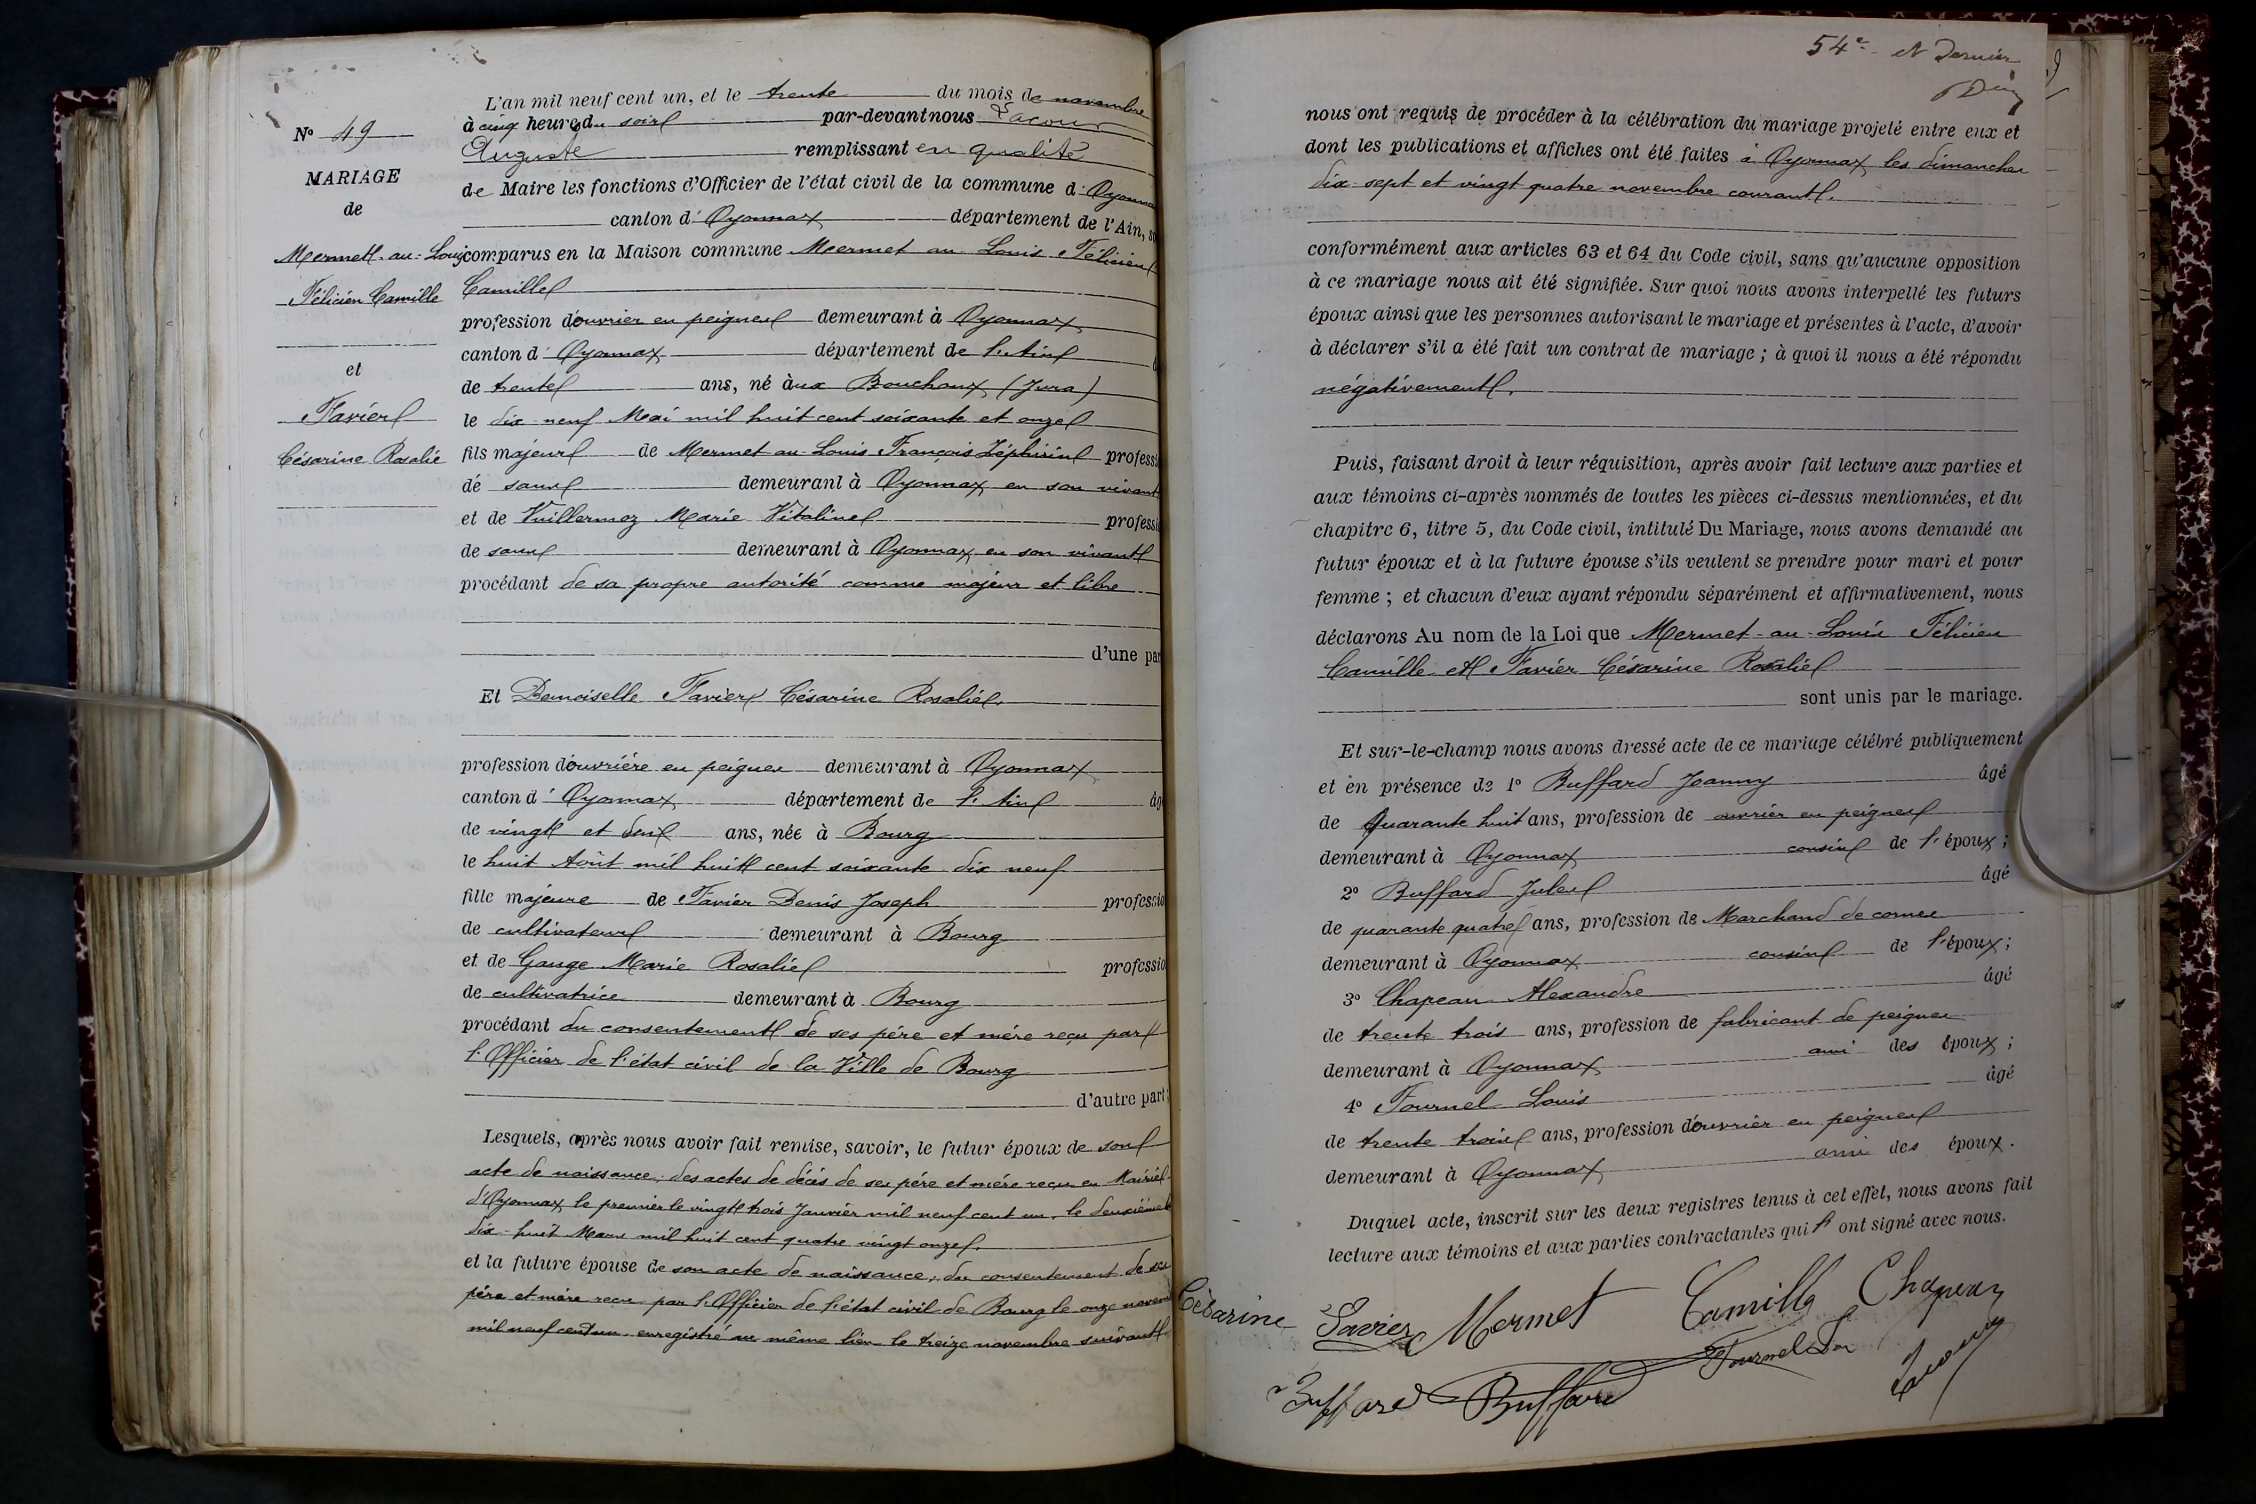 N° 49
MARIAGE
de
Mermet-au-Louis
Félicien Camille
et
Favier
Césarine Rosalie
L'an mil neuf cent un, et le trente du mois de novembre
à cinq heures du soir par-devant nous Lacour
Auguste remplissant en qualité
de Maire les fonctions d'Officier de l'état civil de la commune d'Oyonnax
canton d'Oyonnax département de l'Ain, so
comparus en la Maison commune Mermet au Louis Félicien
Camille
profession d'ouvrier en peignes demeurant à Oyonnax
canton d'Oyonnax département de l'Ain
de trente ans, né aux Bouchoux (Jura)
le dix neuf Mai mil huit cent soixante et onze
fils majeur de Mermet au Louis François Zéphirin professi
de sans demeurant à Oyonnax en son vivant
et de Vuillermoz Marie Vitaline professi
de sans demeurant à Oyonnax en son vivant
procédant de sa propre autorité comme majeur et libre
d'une par
Et Demoiselle Favier Césarine Rosalie.
profession d'ouvrière en peignes demeurant à Oyonnax
canton d'Oyonnax département de l'Ain âg
de vingt et deux ans, née à Bourg
le huit Août mil huit cent soixante dix neuf
fille majeure de Favier Denis Joseph professio
de cultivateur demeurant à Bourg
et de Gauge Marie Rosalie professio
de cultivatrice demeurant à Bourg
procédant du consentement de ses père et mère reçu par
l'Officier de l'état civil de la Ville de Bourg
d'autre part;
Lesquels, après nous avoir fait remise, savoir, le futur époux de son
acte de naissance; des actes de décès de ses père et mère reçus en Mairie
d'Oyonnax le premier le vingt trois Janvier mil neuf cent un, le deuxième le
dix-huit Mars mil huit cent quatre vingt onze.
et la future épouse de son acte de naissance; du consentement de ses
père et mère reçu par l'Officier de l'état civil de Bourg le onze novem
mil neuf cent un enregistré au même lieu le treize novembre suivant.
54e et Dernier
nous ont requis de procéder à la célébration du mariage projeté entre eux et
dont les publications et affiches ont été faites à Oyonnax les dimanches
dix-sept et vingt quatre novembre courant.
conformément aux articles 63 et 64 du Code civil, sans qu'aucune opposition
à ce mariage nous ait été signifiée. Sur quoi nous avons interpellé les futurs
époux ainsi que les personnes autorisant le mariage et présentes à l'acte, d'avoir
à déclarer s'il a été fait un contrat de mariage; à quoi il nous a été répondu
négativement.
Puis, faisant droit à leur réquisition, après avoir fait lecture aux parties et
aux témoins ci-après nommés de toutes les pièces ci-dessus mentionnées, et du
chapitre 6, titre 5, du Code civil, intitulé Du Mariage, nous avons demandé au
futur époux et à la future épouse s'ils veulent se prendre pour mari et pour
femme; et chacun d'eux ayant répondu séparément et affirmativement, nous
déclarons Au nom de la Loi que Mermet-au-Louis Félicien
Camille et Favier Césarine Rosalie
sont unis par le mariage.
Et sur-le-champ nous avons dressé acte de ce mariage célébré publiquement
et en présence de 1° Buffard Joanny âgé
de quarante huit ans, profession de ouvrier en peignes
demeurant à Oyonnax cousin de l'époux;
2° Buffard Jules âgé
de quarante quatre ans, profession de Marchand de cornes
demeurant à Oyonnax cousin de l'époux;
3° Chapeau Alexandre âgé
de trente trois ans, profession de fabricant de peignes
demeurant à Oyonnax ami des époux;
4° Fournel Louis âgé
de trente trois ans, profession d'ouvrier en peignes
demeurant à Oyonnax ami des époux.
Duquel acte, inscrit sur les deux registres tenus à cet effet, nous avons fait
lecture aux témoins et aux parties contractantes qui ont signé avec nous.
Césarine Favier Mermet Camille Chapeau
Buffard Buffard Fournel Ls Lacour